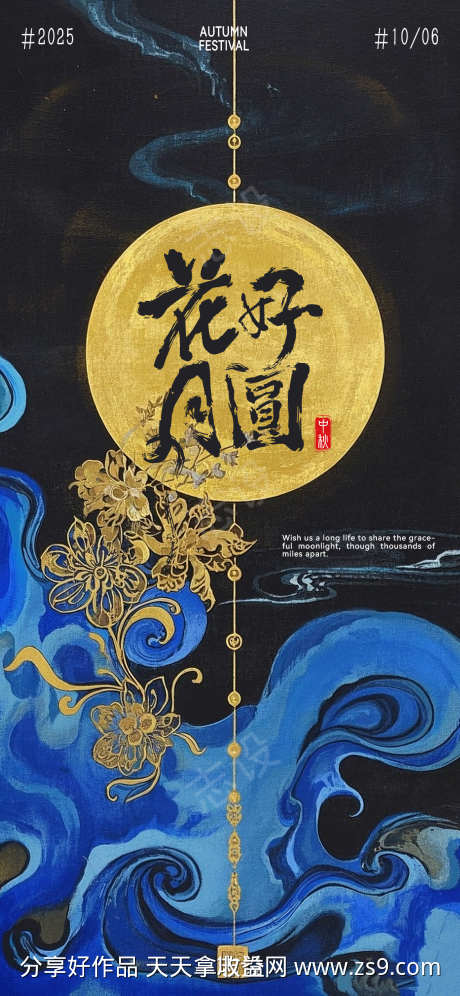 #2025
AUTUMN
FESTIVAL
#10/06
花好
月圓
中秋
Wish us a long life to share the grace-
ful moonlight, though thousands of
miles apart.
志设
分享好作品 天天拿收益网 www.zs9.com